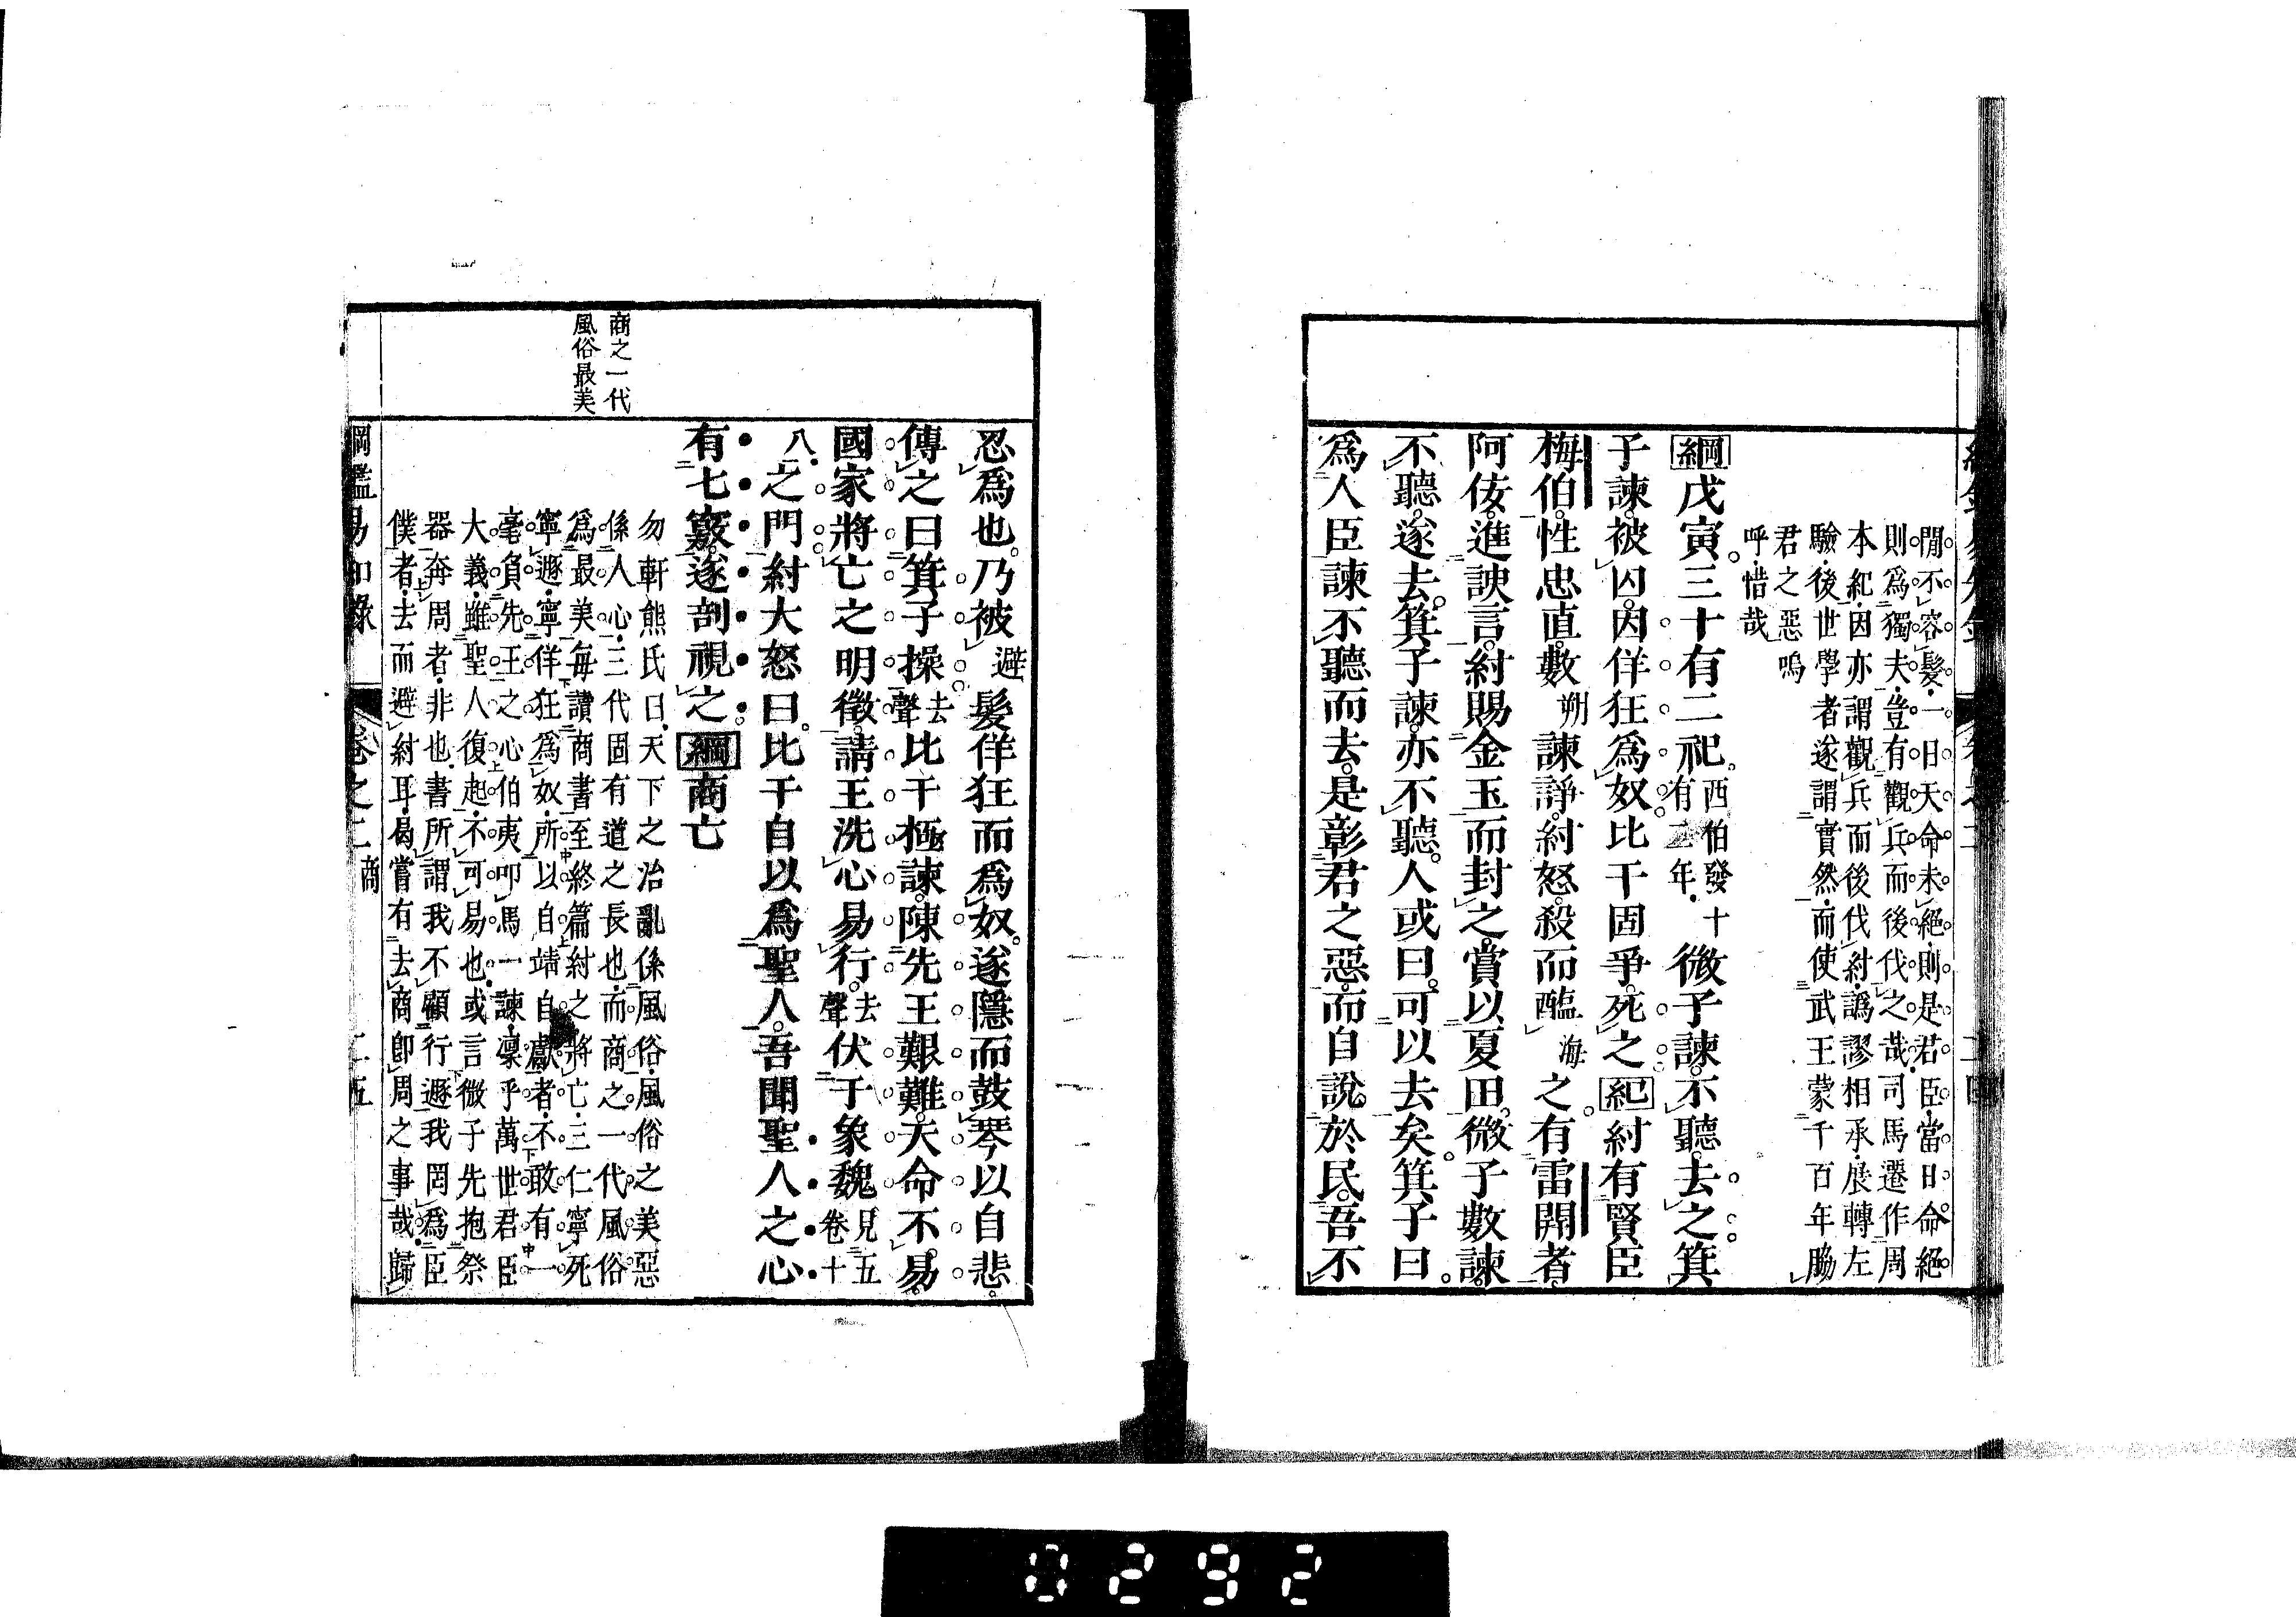 間不容髮一日天命未絕則是君臣當日命絕
則爲獨夫豈有觀兵而後伐之哉司馬遷作周
本紀因亦謂觀兵而後伐紂譌謬相承展轉左
驗後世學者遂謂實然而使武王蒙千百年脇
君之惡嗚
呼惜哉
綱戊寅三十有二祀西伯發十
有二年微子諫不聽去之箕
子諫被囚因佯狂爲奴比干固爭死之紀紂有賢臣
梅伯性忠直數朔諫諍紂怒殺而醢海之有雷開者
阿佞進諛言紂賜金玉而封之賞以夏田微子數諫
不聽遂去箕子諫亦不聽人或曰可以去矣箕子曰
爲人臣諫不聽而去是彰君之惡而自說於民吾不
忍爲也乃被避髮佯狂而爲奴遂隱而鼓琴以自悲
傳之曰箕子操去聲比干極諫陳先王艱難天命不易
國家將亡之明徵請王洗心易行去聲伏于象魏見五
卷十
八之門紂大怒曰比干自以爲聖人吾聞聖人之心
有七竅遂剖視之綱商亡
商之一代
風俗最美
勿軒熊氏曰天下之治亂係風俗風俗之美惡
係人心三代固有道之長也而商之一代風俗
爲最美每讀商書至終篇紂之將亡三仁寧死
寧遯寧佯狂爲奴所以自靖自獻者不敢有一
毫負先王之心伯夷叩馬一諫凜乎萬世君臣
大義雖聖人復起不可易也或言微子先抱祭
器奔周者非也書所謂我不顧行遯我罔爲臣
僕者去而避紂耳曷嘗有去商卽周之事哉歸
綱鑑易知錄 卷之二 商 二五
0292